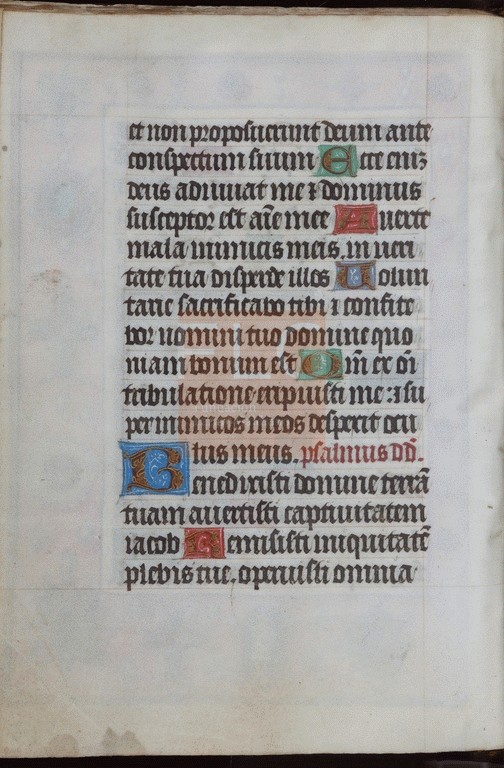 et non proposuerunt deum ante
conspectum suum Ecce eniz
deus adiuuat me ⁊ dominus
susceptor est aīe mee Auerte
mala inimicis meis. in ueri
tate tua disperde illos Uolun
tarie sacrificabo tibi ⁊ confite
bor nomini tuo domine quo
niam bonum est Qm̄ ex oī
tribulatione eripuisti me : ⁊ su
per inimicos meos despexit ocu
lus meus. psalmus dd̄.
Benedixisti domine terrā
tuam auertisti captiuitatem
iacob Remisisti iniquitatē
plebis tue. operuisti omnia